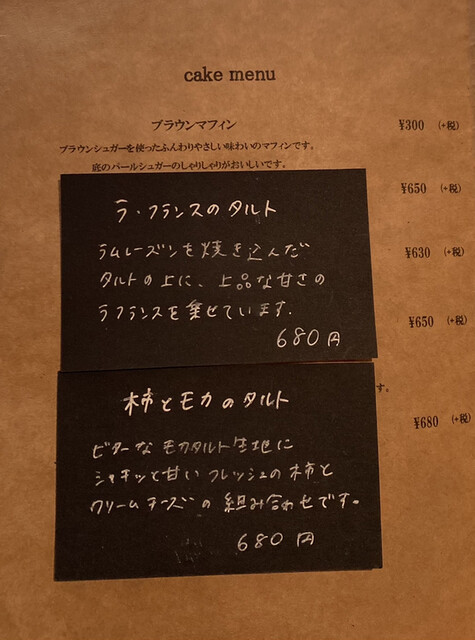 cake menu
ブラウンマフィン ¥300 (+税)
ブラウンシュガーを使ったふんわりやさしい味わいのマフィンです。
底のパールシュガーのしゃりしゃりがおいしいです。
¥650 (+税)
ラ・フランスのタルト
ラムレーズンを焼き込んだ
タルトの上に、上品な甘さの
ラフランスを乗せています.
680円
¥630 (+税)
¥650 (+税)
す。
¥680 (+税)
柿とモカのタルト
ビターなモカタルト生地に
シャキッと甘いフレッシュの柿と
クリームチーズの組み合わせです。
680円